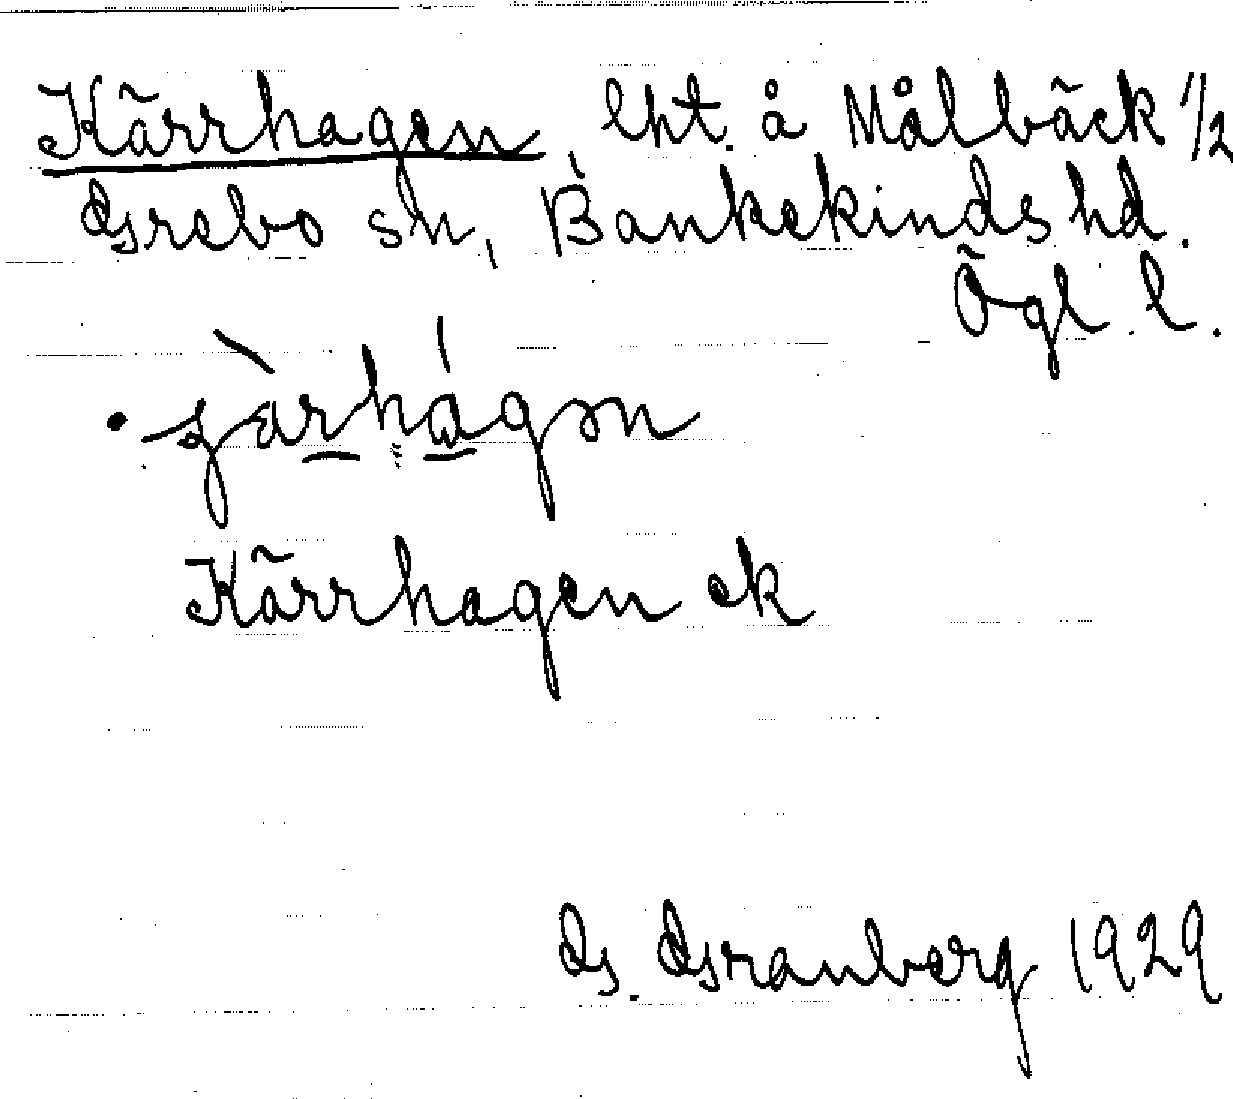 Kärrhagen lht. å Målbäck 1/2
Grebo sn, Bankekinds hd.
Ögl. l.
Kärrhagen ek
G. Granberg 1929